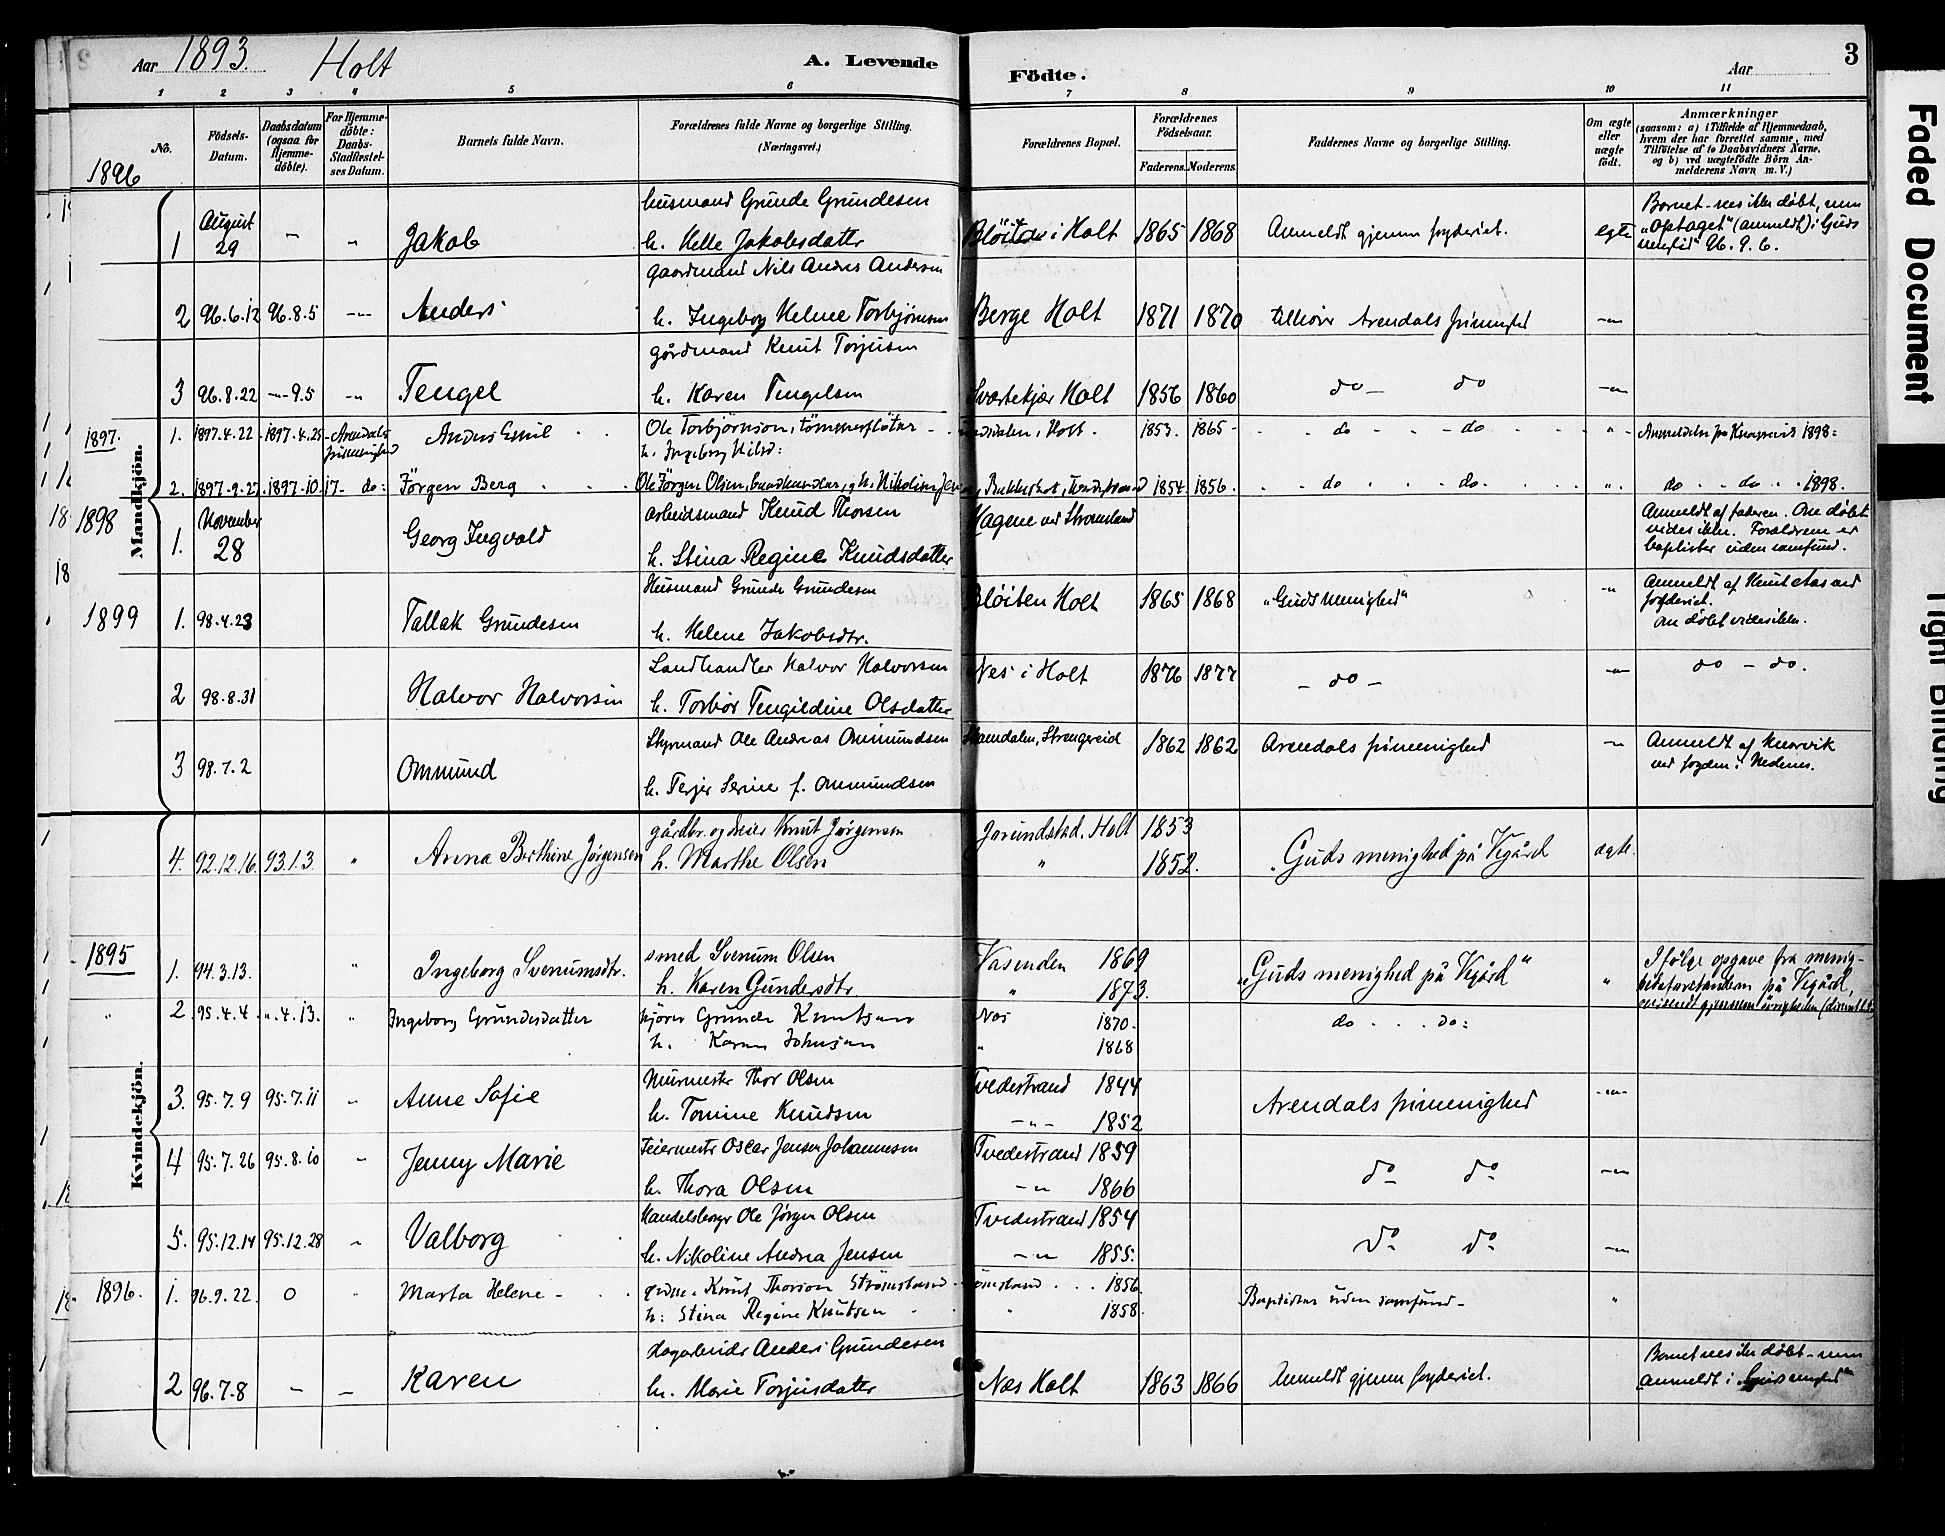 Aar 1893. Holt
A. Levende Födte.
Aar
3
1 2 3 4 5 6 7 8 9 10 11
No.
Födsels-Datum.
Daabsdatum (ogsaa for Hjemme-döbte).
For Hjemme-döbte: Daabs-Stadfæstel-ses Datum.
Barnets fulde Navn.
Forældrenes fulde Navne og borgerlige Stilling. (Næringsvei.)
Forældrenes Bopæl.
Forældrenes Födselsaar.
Faderens. Moderens.
Faddernes Navne og borgerlige Stilling.
Om ægte eller uægte födt.
Anmærkninger (saasom: a) i Tilfælde af Hjemmedaab, hvem der har forrettet samme, med Tilföielse af to Daabsvidners Navne, og b) ved uægtefödte Börn An-melderens Navn m. V.)
Mandkjön.
1896
husmand Grunde Grundesen
1 August 29 - " Jakob h. Helle Jakobsdatter Blöiten i Holt 1865 1868 Anmeldt gjennem fogderiet. egte
Barnet sees ikke døbt, men "Optaget" (anmeldt) i Guds menghed 96.9.6.
gaardmand Nils Andres Andersen
2 96.6.12 96.8.5 -"- Anders h. Ingeborg Helene Torbjörnsen Berge Holt 1871 1870 tilhörer Arendals frimenighed -"-
gårdmand Knut Torjusen
3 96.8.22 -"-9.5 -"- Tengel h. Karen Tengelsen Svartekjær Holt 1856 1860 do - do -"-
1897. 1. 1897.4.22. 1897.4.25 Arendals frimenighed Anders Emil Ole Torbjörnson, tömmerflöter
h. Ingeborg Nilsd: Holt. 1853. 1865 - do - do "- Anmeldelse fra 1898:
2. 1897-9-27. 1897-10.17- do: Jörgen Berg Ole Jörgen Olsen, landhandler, og h. Nikoline Jen 1854. 1856. do do. ". do do 1898.
1898 1. November 28 Georg Ingvald arbeidsmand Knud Thorsen
h. Stina Regine Knudsdatter Hagene ved Strømsland
Anmeldt af faderen. Om døbt vides ikke. Forældrene er baptister uden samfund.
Husmand Grunde Grundesen
1899 1. 98.4.23 Tallak Grundesen h. Helene Jakobsdtr. Blöiten Holt 1865 1868 "Guds menighed" -"
Anmeldt af Knut Aas ved fogderiet. Om døbt vides ikke.
Landhandler Halvor Halvorsen
2 98.8.31 Halvor Halvorsen h. Torbör Tengeldine Olsdatter Nes i Holt 1876 1877 - do - -"- do - do.
Styrmand Ole Andreas Ommundsen
3 98.7.2 Ommund h. Terjer Serine f. Ommundsen Strengereid 1862 1862 Arendals frimenighed -"
Anmeldt af Knarvik ved fogden i Nedenes.
Kvindekjön.
gårdbr. og Knut Jørgensen
4. 92.12.16. 93.1.3. " Anna Berthine Jørgensen h. Marthe Olsen Jorundstad. Holt 1853
" 1852. "Guds menighed på Vegård ægte.
1895 1. 94.3.13. " Ingeborg Svenumsdtr. smed Svenum Olsen
h. Karen Gundersdtr Vasenden 1869
" 1873. "Guds menighed på Vegård" "
Ifölge opgave fra menig-hedsforstanderen på Vegård,
" 2. 95.4.4 ".4.13. " Ingeborg Grundesdatter kjører Grunde Knutsen
h. Karen Johnsen Næs 1870.
" 1868 do do:
3. 95.7.9 95.7.11 " Anne Sofie Murmester Thor Olsen
h. Tomine Knudsen Tvedestrand 1844
-"- 1852 Arendals frimenighed -"-
4 95.7.26 95.8.10 -" Jenny Marie Feiermester Oscar Jensen Johannesen
h. Thora Olsen Tvedestrand 1859
-"- 1866 do do -"-
5. 95.12.14 95.12.28 " Valborg Handelsborger Ole Jörgen Olsen
h. Nikoline Andrea Jensen Tvedestrand 1854
-"- 1855. do do -"-
1896. 1. 96.9.22. 0 " Marta Helene Knut Thorson Strömsland
h: Stina Regine Knutsen 1856.
" 1858. Baptister uden samfund - "
Dagarbeider Anders Grundesen
2 96.7.8 - - Karen h. Marie Torjusdatter Næs Holt 1863 1866 Anmeldt gjennem fogderiet.
Barnet sees ikke döbt - men anmeldt i "Guds menghed"
Faded Document
Tight Binding